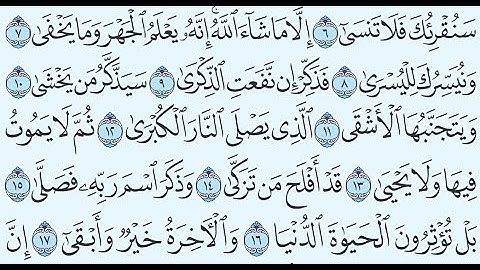 سَنُقْرِئُكَ فَلَا تَنسَىٰٓ ٦ إِلَّا مَا شَآءَ ٱللَّهُ ۚ إِنَّهُۥ يَعْلَمُ ٱلْجَهْرَ وَمَا يَخْفَىٰ ٧
وَنُيَسِّرُكَ لِلْيُسْرَىٰ ٨ فَذَكِّرْ إِن نَّفَعَتِ ٱلذِّكْرَىٰ ٩ سَيَذَّكَّرُ مَن يَخْشَىٰ ١٠
وَيَتَجَنَّبُهَا ٱلْأَشْقَى ١١ ٱلَّذِى يَصْلَى ٱلنَّارَ ٱلْكُبْرَىٰ ١٢ ثُمَّ لَا يَمُوتُ
فِيهَا وَلَا يَحْيَىٰ ١٣ قَدْ أَفْلَحَ مَن تَزَكَّىٰ ١٤ وَذَكَرَ ٱسْمَ رَبِّهِۦ فَصَلَّىٰ ١٥
بَلْ تُؤْثِرُونَ ٱلْحَيَوٰةَ ٱلدُّنْيَا ١٦ وَٱلْءَاخِرَةُ خَيْرٌ وَأَبْقَىٰٓ ١٧ إِنَّ